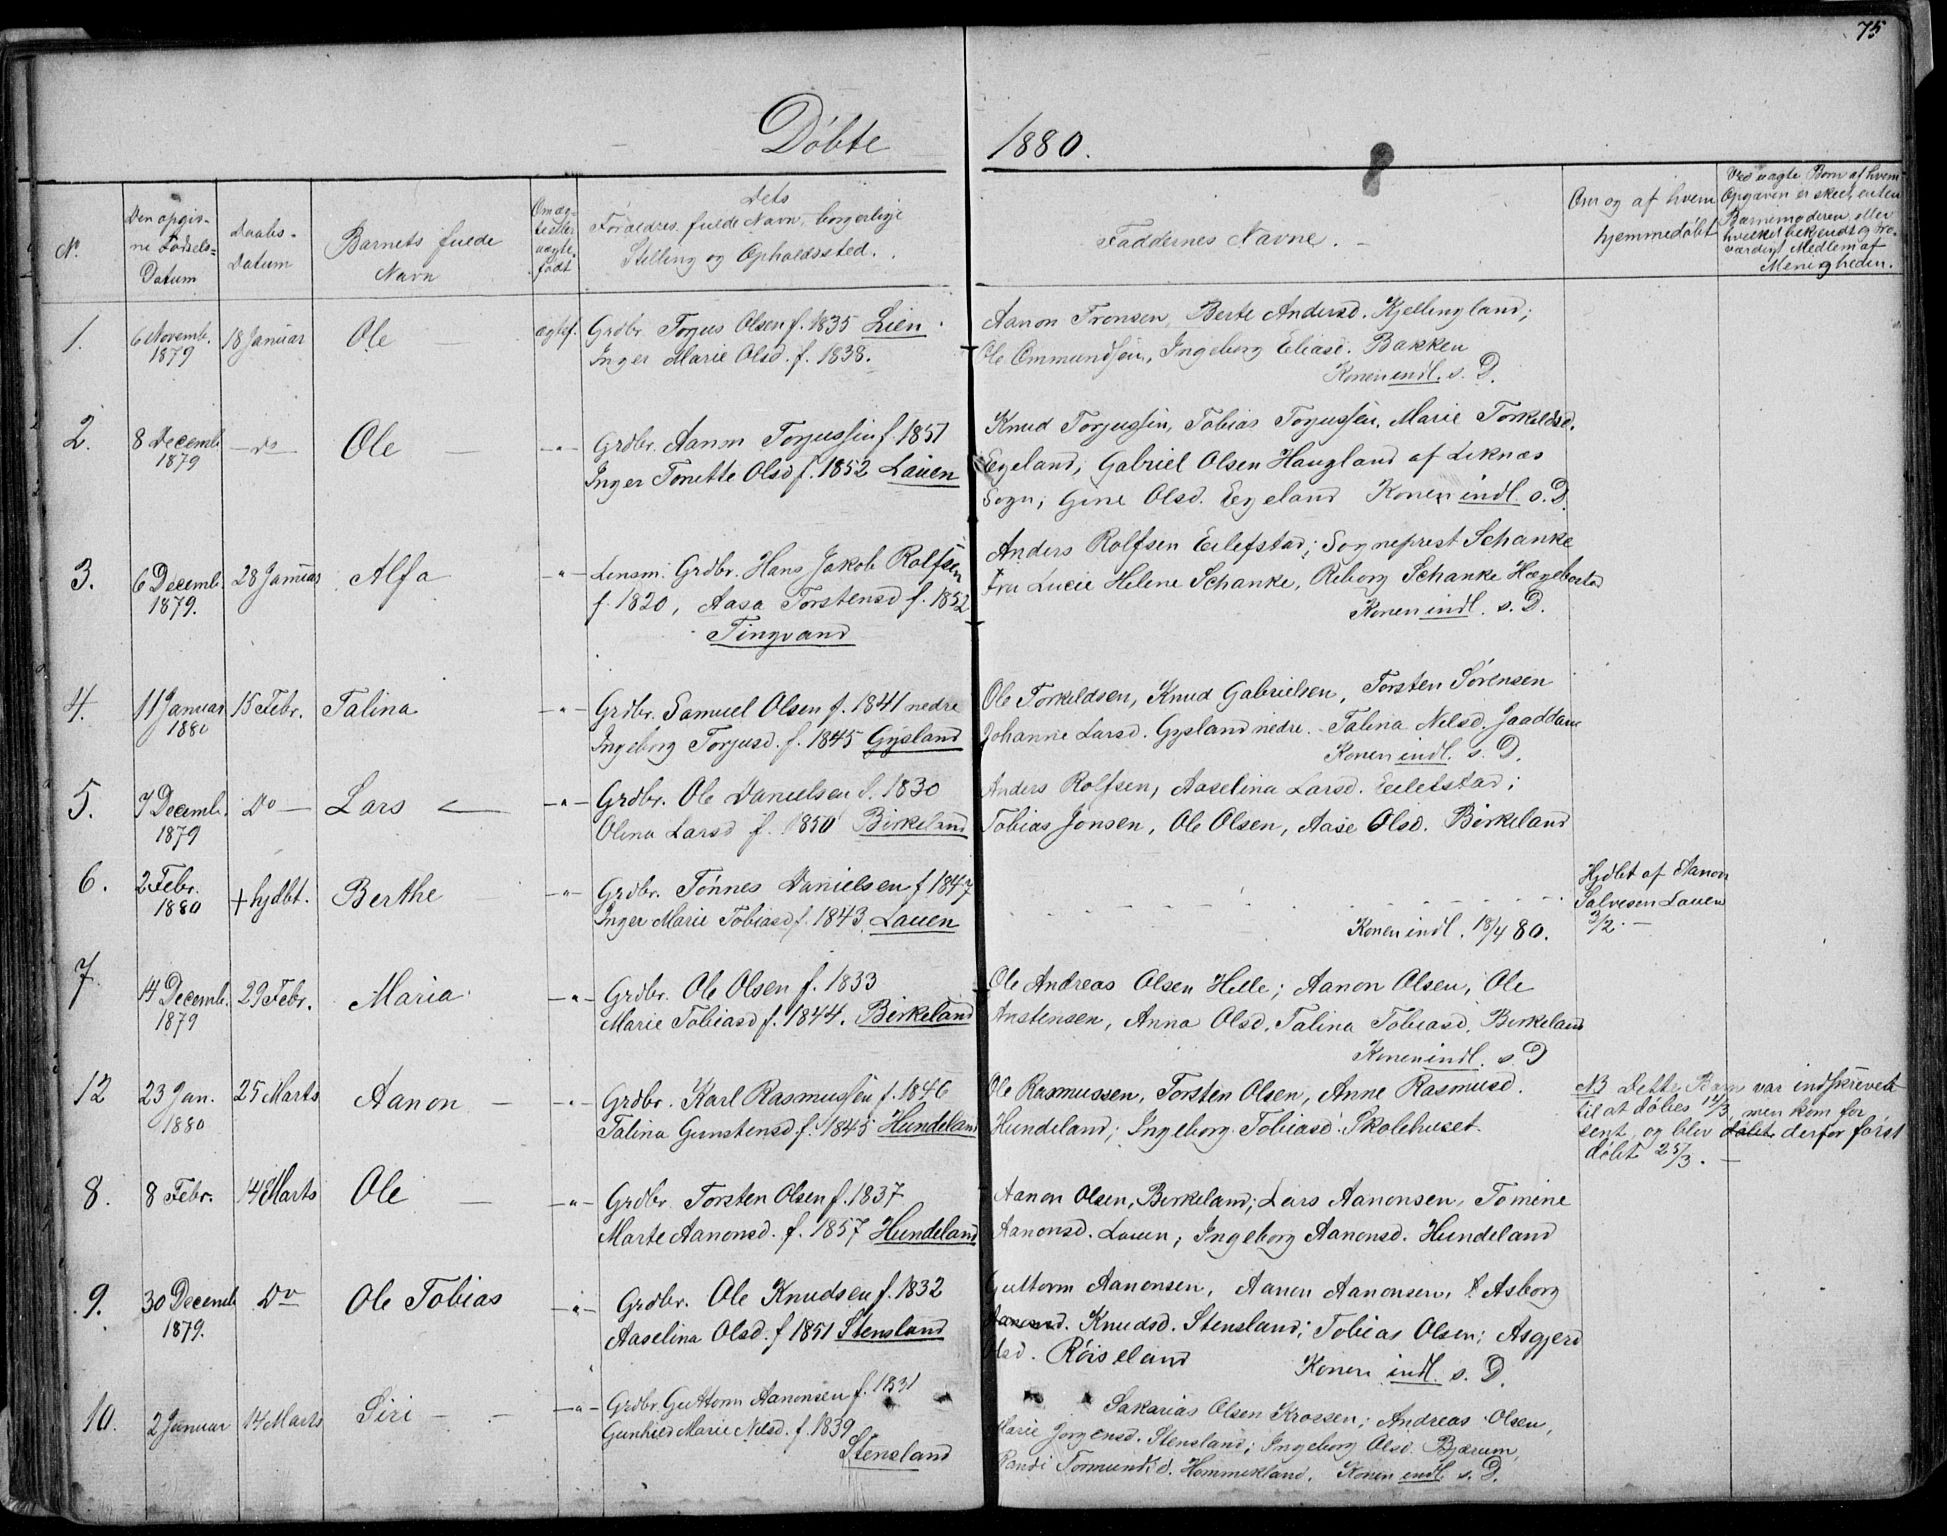 75
Døbte 1880.
No.
Den opgiv-
ne Fødsels-
Datum
Daabs-
Datum
Barnets fulde
Navn
Om æg-
te eller
uægte
født
Dets
Forældres fulde Navn, borgerlige
Stilling og Opholdssted.
Faddernes Navne.
Om og af hvem
hjemmedøbt
Ved uægte Børn af hvem
Opgaven er skeet, enten
Barnemoderen, eller
hvilket bekjendt og tro-
værdigt Medlem af
Menigheden.
1. 6 Novemb. 18 Januar Ole ægtef. Grdbr. Torjus Olsen f. 1835 Lien
1879 Inger Marie Olsd. f. 1838.
Aanon Tronsen, Berte Andersd. Kjellingland;
Ole Ommundsen, Ingeborg Eliasd. Bakken
Konen indl. s. D.
2. 8 Decemb. Do Ole -"- Grdbr. Aanon Torjussen f. 1851
1879 Inger Tonette Olsd f. 1852 Lauen
Knud Torjussen, Tobias Torjussen, Marie Torkildsd.
Egeland; Gabriel Olsen Haugland af Liknæs
Sogn; Gine Olsd. Egeland Konen indl. s. D.
3. 6 Decemb. 28 Januar Alfa -"- Lensm. Grdbr. Hans Jakob Rolfsen
1879. f. 1820, Aasa Torstensd f. 1852
Tingvand
Anders Rolfsen Eilefstad; Sogneprest Schanke
Fru Lucie Helene Schanke, Reborg Schanke Hægebostad
Konen indl. s. D.
4. 11 Januar 15 Febr. Talina -"- Grdbr. Samuel Olsen f. 1841 nedre
1880 Ingeborg Torjusd. f. 1845 Gysland
Ole Torkildsen, Knud Gabrielsen, Torsten Sørensen
Johanne Larsd. Gysland nedre. Talina Nilsd. Jaaddan
Konen indl. s. D.
5. 7 Decemb. Do Lars -"- Grdbr. Ole Danielsen f. 1830
1879 Olena Larsd f. 1850 Birkeland
Anders Rolfsen, Aaselina Larsd. Eilefstad;
Tobias Jonsen, Ole Olsen, Aase Olsd. Birkeland
6. 2 Febr. + hjdbt. Berthe -"- Grdbr. Tønnes Danielsen f. 1847
1880 Inger Marie Tobiasd f. 1843. Lauen
Konen indl. 18/4 80.
Hjdbt af Aanon
Salvesen Lauen
3/2.
7. 14 Decemb. 29 Febr. Maria -"- Grdbr. Ole Olsen f. 1833
1879 Marie Tobiasd f. 1844. Birkeland
Ole Andreas Olsen Helle; Aanon Olsen, Ole
Anstensen, Anna Olsd. Talina Tobiasd. Birkeland
Konen indl. s D
12 23 Jan. 25 Marts Aanon -"- Grdbr. Karl Rasmussen f. 1846
1880 Talina Gunstensd f. 1845 Hundeland
Ole Rasmussen, Torsten Olsen, Anne Rasmusd.
Hundeland; Ingeborg Tobiasd. Skolehuset.
NB Dette Barn var indskrevet
til at døbes 14/3, men kom for
sent, og blev døbt derfor først
døbt 25/3.
8. 8 Febr. 14 Marts Ole -"- Grdbr. Torsten Olsen f. 1837
Marte Aanonsd. f. 1857 Hundeland
Aanon Olsen, Birkeland; Lars Aanonsen, Tomine
Aanonsd. Lauen; Ingeborg Aanonsd. Hundeland
9. 30 Decemb Do Ole Tobias -"- Grdbr. Ole Knudsen f. 1832
1879. Aaselina Olsd. f 1851 Stensland
Guttorm Aanonsen, Aanon Aanonsen, Asborg
Aanonsd. Knudsd. Stensland; Tobias Olsen; Asgjerd
Olsd. Røiseland Konen indl. s. D.
10. 2 Januar 14 Marts Siri -"- Grdbr. Guttorm Aanonsen f. 1831
Gunhild Marie Nilsd. f. 1839
Stensland
Sakarias Olsen Krossen; Andreas Olsen,
Marie Jørgensd. Stensland; Ingeborg Olsd. Bjærum,
Randi Tormundsd. Hommekland. Konen indl. s. D.